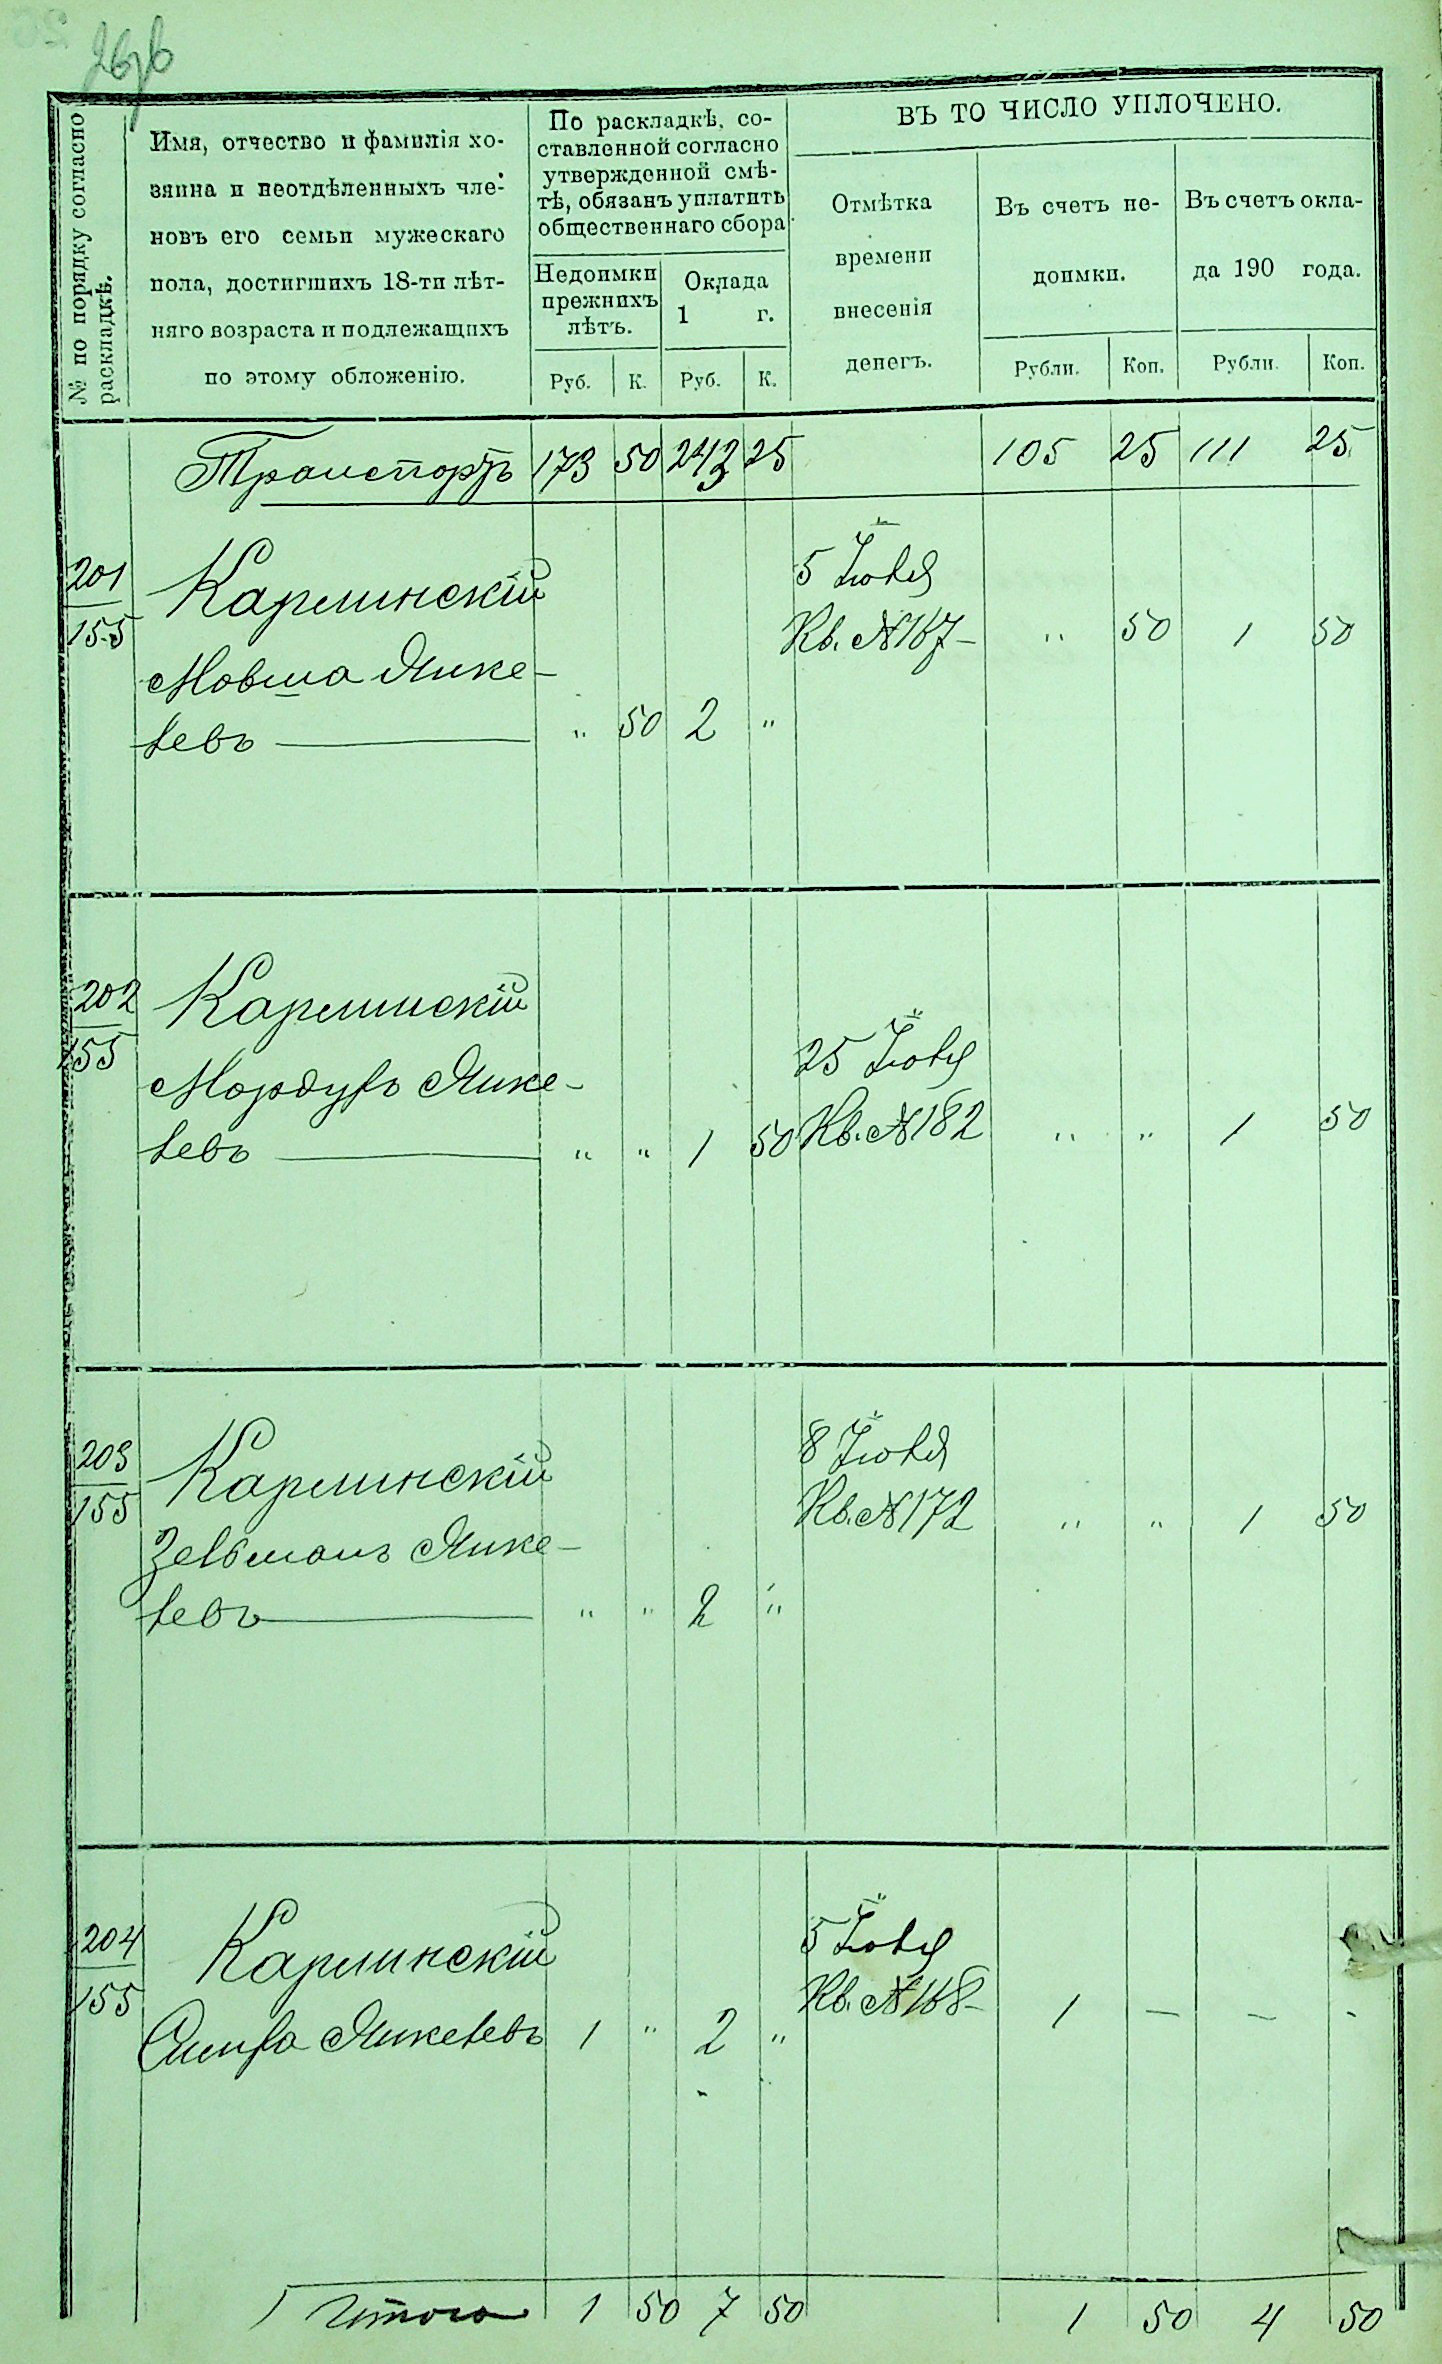 26об
№ по порядку согласно
раскладкѣ.
Имя, отчество и фамилія хо-
зяина и неотдѣленныхъ чле-
новъ его семьи мужескаго
пола, достигшихъ 18-ти лѣт-
няго возраста и подлежащихъ
по этому обложенію.
По раскладкѣ, со-
ставленной согласно
утвержденной смѣ-
тѣ, обязанъ уплатить
общественнаго сбора
Недоимки
прежнихъ
лѣтъ.
Оклада
1 г.
Руб. К. Руб. К.
ВЪ ТО ЧИСЛО УПЛОЧЕНО.
Отмѣтка
времени
внесенія
денегъ.
Въ счетъ не-
доимки.
Въ счетъ окла-
да 190 года.
Рубли. Коп. Рубли. Коп.
Транспортъ 173 50 243 25 105 25 111 25
201
155
Карлинскій
Мовша Янке-
левъ " 50 2 "
5 Іюля
Кв. №167 " 50 1 50
202
155
Карлинскій
Мордухъ Янке-
левъ " " 1 50
25 Іюля
Кв. №182 " " 1 50
203
155
Карлинскій
Зельманъ Янке-
левъ " " 2 "
8 Іюля
Кв. №172 " " 1 50
204
155
Карлинскій
Янкелевъ 1 " 2 "
5 Іюля
Кв. №168 1 — — -
Итого 1 50 7 50 1 50 4 50